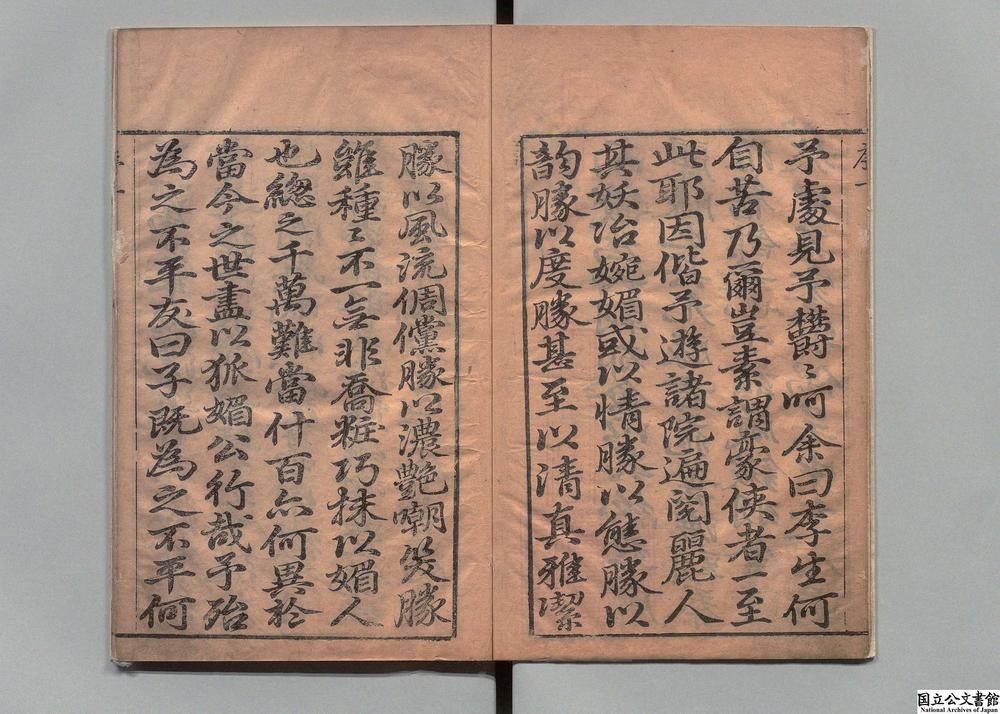 序一
予處見予欝〻呵余曰李生何
自苦乃爾豈素謂豪俠者一至
此耶因偕予遊諸院遍閱麗人
其妖冶婉媚或以情勝以態勝以
韵勝以度勝甚至以清真雅潔
勝以風流倜儻勝以濃艷嘲笑勝
雖種〻不一無非喬粧巧抹以媚人
也總之千萬難當什百亦何異於
當今之世盡以狐媚公行哉予殆
為之不平友曰子既為之不平何
国立公文書館
National Archives of Japan